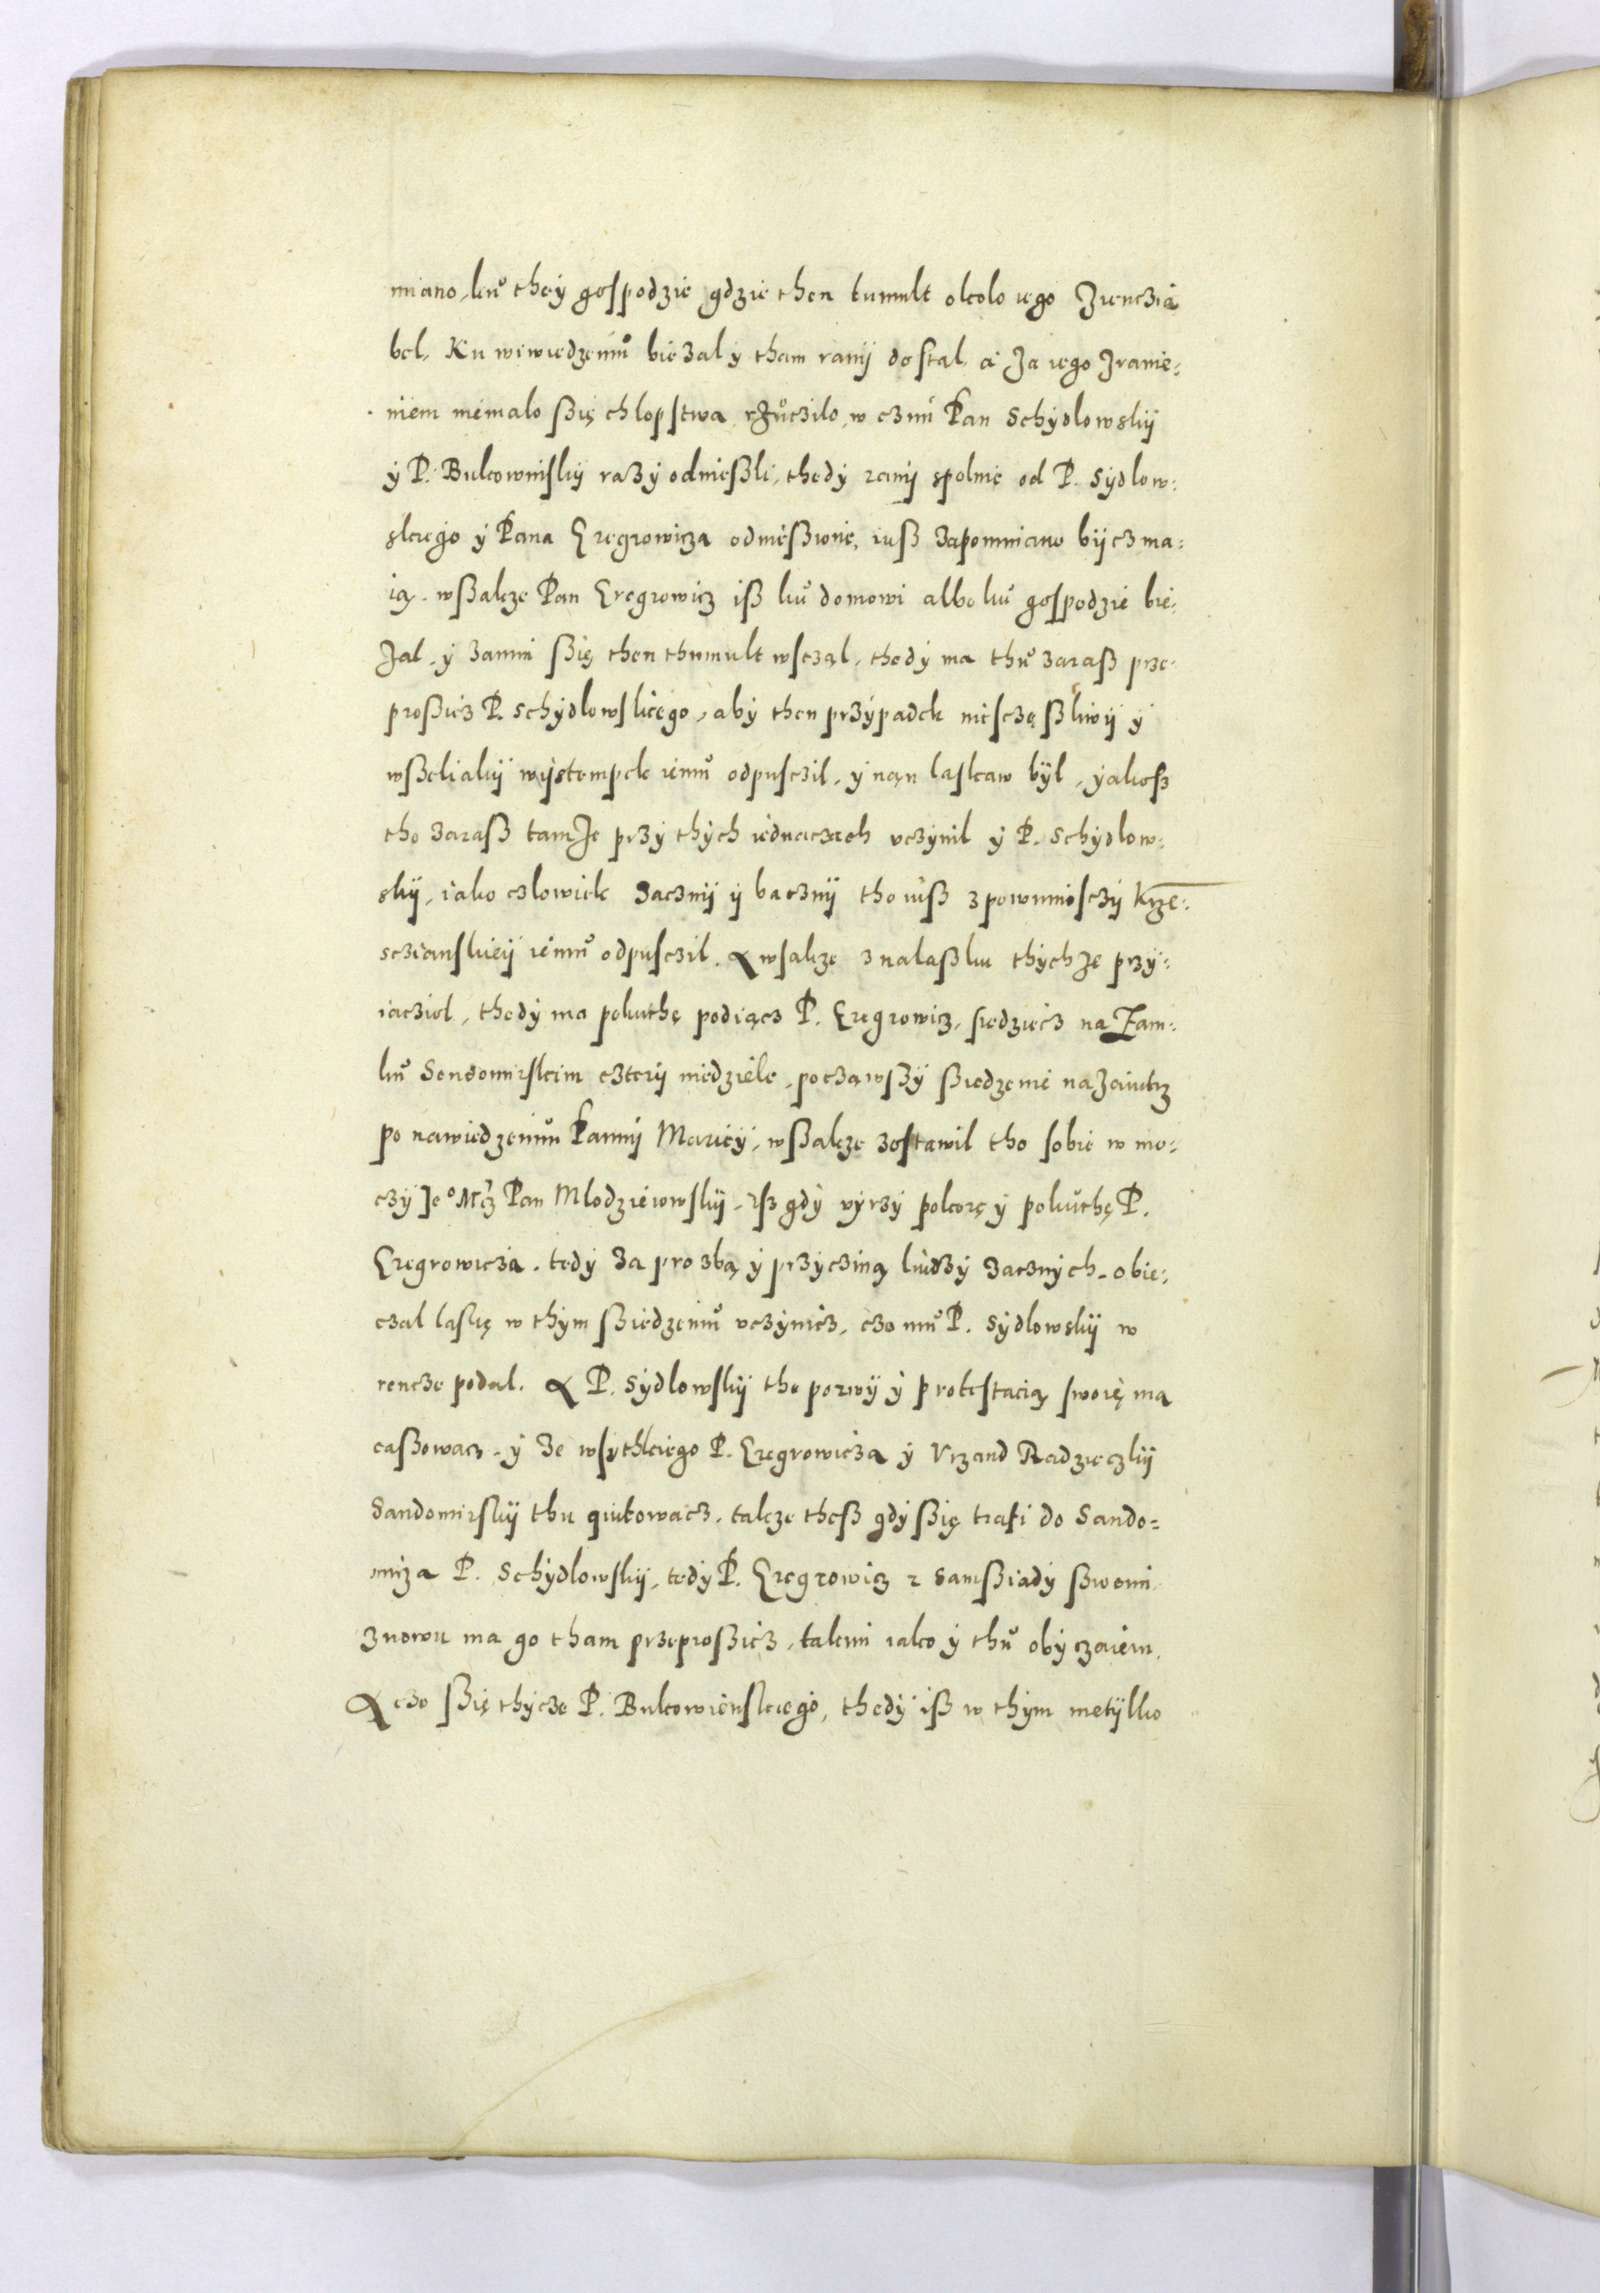 miano, ku they gospodzie gdzie then tumult okolo iego Zienczia
bel, Ku wiwiedzeniu biezal y tham ranÿ dostal. a Za iego Zranie-
niem niemalo ßię chlopstwa rZuczilo, w czim Pan Schydlowskÿ
y P. Bukownskÿ razy odnießli, thedy ranÿ spolnie od P. Sydlow-
skiego y Pana Gregrowicza odnießione, iuß zapomniano bÿcz ma-
ią. wßakze Pan Gregrowicz iß ku domowi albo ku gospodzie bie-
Zal, y zanim ßię then thumult wsczął, thedy ma thu zaraß prze-
proßicz P. Schydlowskiego, aby then przypadek niesczęßliwÿ y
wßeliakÿ wÿstempek iemu odpusczil, y nąn laskaw bÿl, yakoß
tho zaraß tamZe przy thych iednaczach vczynil y P. Schydlow-
skÿ, iako czlowiek zacznÿ y bacznÿ tho iuß z powinnosczÿ Krze-
scziańskieÿ iemu odpusczil. A wsakze z nalaßku thychZe przy-
iacziol, thedy ma pokuthę podiącz P. Gregrowicz, siedziecz na Zam-
ku Sendomirskim czterÿ niedziele, począwßy ßiedzenie naZaiutrz
po nawiedzeniu Pannÿ Mariey, wßakze zostawil tho sobie w mo-
czÿ Je° Mcz Pan Mlodziewwskÿ, iß gdy vyrzy pokorę y pokuthę P.
Gregrowicza, tedy za prozbą y przyczиną ludzy zacznych, obie-
czal laskę w thym ßiedzeniu vczynicz, czo mu P. Sydlowskÿ w
rencze podal. A P. Sydlowskÿ the pozwÿ y protestacią swoię ma
caßowacz, y ze wsythkiego P. Gregrowicza y Vrzand Radzieczkÿ
Sandomirskÿ thu qiutowacz, takze theß gdy ßię trafi do Sando-
mirza P. Schydlowskÿ, tedy P. Gregrowicz z Samßiady ßwemi
znowu ma go tham przeproßicz, takim iako y thu obyczaiem.
A czo ßię thycze P. Bukowienskiego, thedy iß w thym nietÿlko